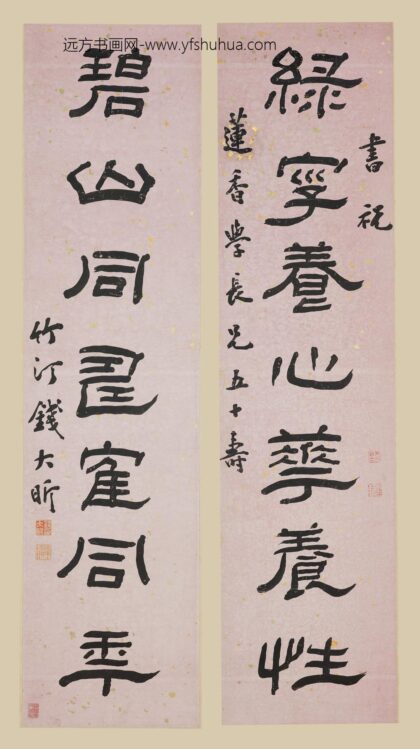 远方书画网-www.yfshuhua.com
書祝
綠養心華養性
蓮香學長兄五十壽
碧山同寉同年
竹汀錢大昕